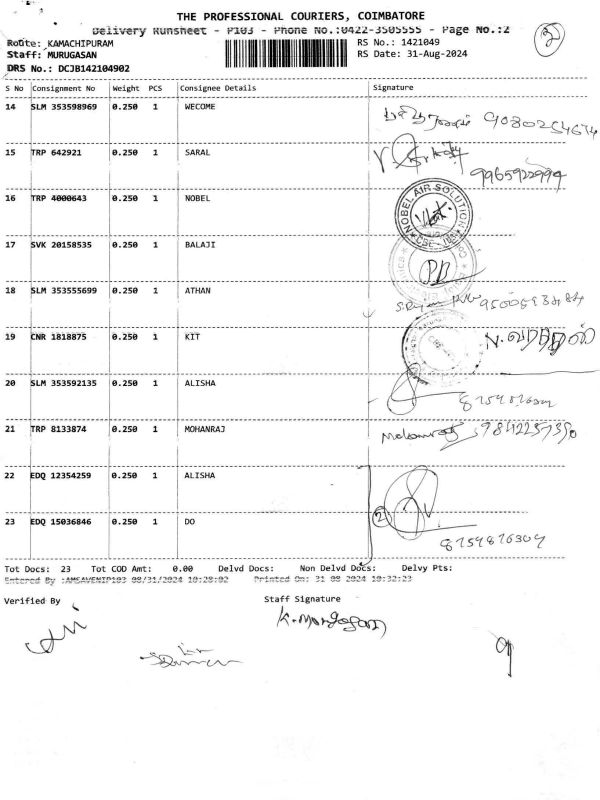 THE PROFESSIONAL COURIERS, COIMBATORE
Delivery Runsheet - P103 - Phone No.:0422-3505555 - Page No.:2
2
Route: KAMACHIPURAM
RS No.: 1421049
Staff: MURUGASAN
RS Date: 31-Aug-2024
DRS No.: DCJB142104902
S No Consignment No Weight PCS Consignee Details Signature
14 SLM 353598969 0.250 1 WECOME
15 TRP 642921 0.250 1 SARAL
9965922994
16 TRP 4000643 0.250 1 NOBEL
NOBEL AIR SOLUTION
17 SVK 20158535 0.250 1 BALAJI
PB
18 SLM 353555699 0.250 1 ATHAN
19 CNR 1818875 0.250 1 KIT
N. வரதராஜ்
20 SLM 353592135 0.250 1 ALISHA
8754876304
21 TRP 8133874 0.250 1 MOHANRAJ
Mohanraj
22 EDQ 12354259 0.250 1 ALISHA
23 EDQ 15036846 0.250 1 DO
2
8754876304
Tot Docs: 23 Tot COD Amt: 0.00 Delvd Docs: Non Delvd Docs: Delvy Pts:
Entered By :AMSAVENIP103 08/31/2024 10:28:02 Printed On: 31 08 2024 10:32:23
Verified By
Staff Signature